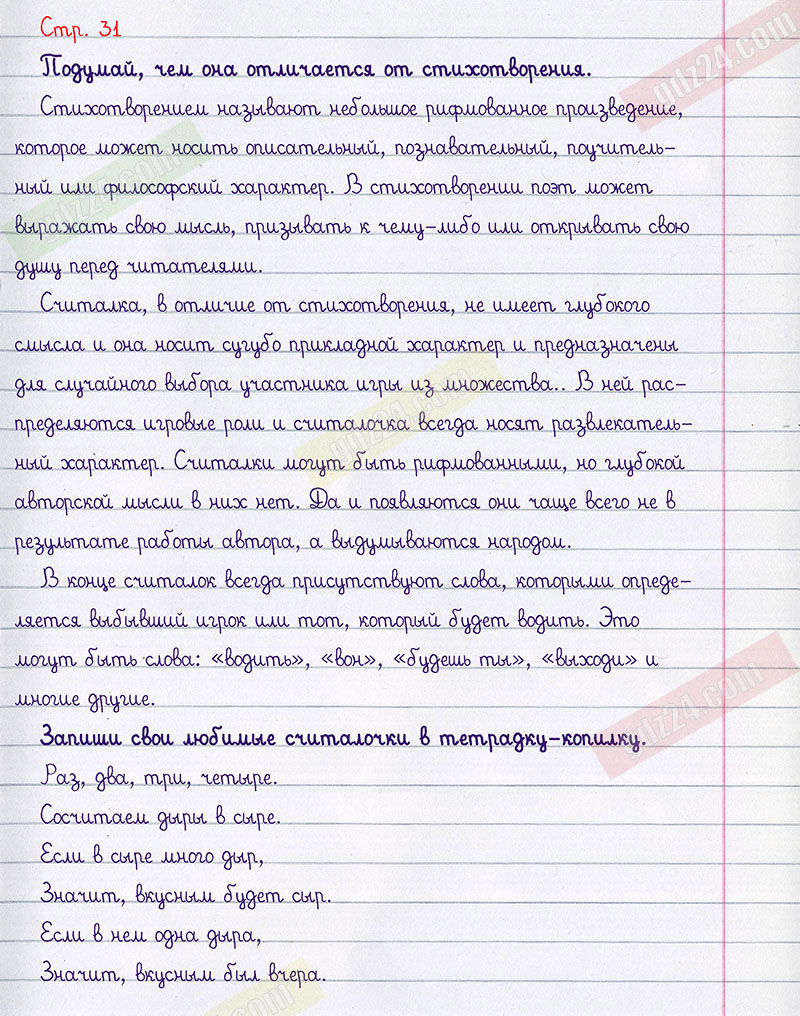 Стр. 31
Подумай, чем она отличается от стихотворения.
Стихотворением называют небольшое рифмованное произведение,
которое может носить описательный, познавательный, поучитель-
ный или философский характер. В стихотворении поэт может
выражать свою мысль, призывать к чему-либо или открывать свою
душу перед читателями.
Считалка, в отличие от стихотворения, не имеет глубокого
смысла и она носит сугубо прикладной характер и предназначены
для случайного выбора участника игры из множества.. В ней рас-
пределяются игровые роли и считалочка всегда носят развлекатель-
ный характер. Считалки могут быть рифмованными, но глубокой
авторской мысли в них нет. Да и появляются они чаще всего не в
результате работы автора, а выдумываются народом.
В конце считалок всегда присутствуют слова, которыми опреде-
ляется выбывший игрок или тот, который будет водить. Это
могут быть слова: «водить», «вон», «будешь ты», «выходи» и
многие другие.
Запиши свои любимые считалочки в тетрадку-копилку.
Раз, два, три, четыре.
Сосчитаем дыры в сыре.
Если в сыре много дыр,
Значит, вкусным будет сыр.
Если в нем одна дыра,
Значит, вкусным был вчера.
gdz24.com
gdz24.com
gdz24.com
gdz24.com